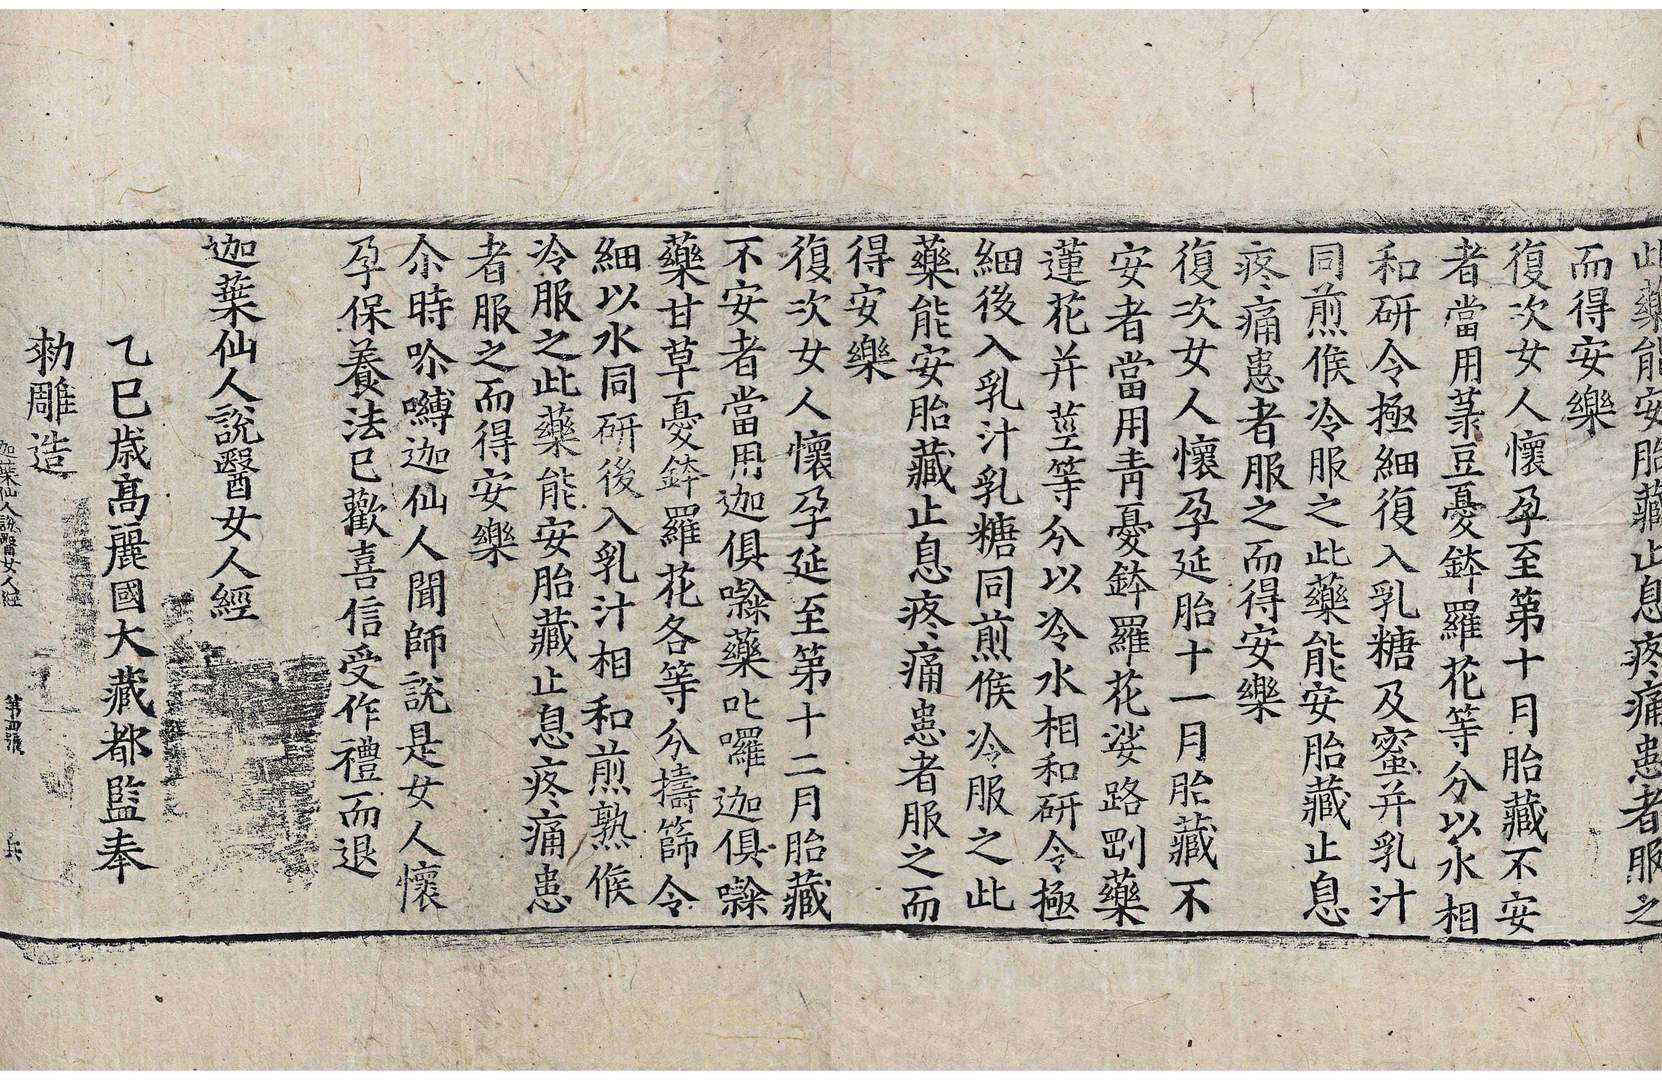 此藥能安胎藏止息疼痛患者服之
而得安樂
復次女人懷孕至第十月胎藏不安
者當用菉豆憂鉢羅花等分以水相
和研令極細復入乳糖及蜜并乳汁
同煎候冷服之此藥能安胎藏止息
疼痛患者服之而得安樂
復次女人懷孕延胎十一月胎藏不
安者當用青憂鉢羅花娑路㓰藥
蓮花并莖等分以冷水相和研令極
細後入乳汁乳糖同煎候冷服之此
藥能安胎藏止息疼痛患者服之而
得安樂
復次女人懷孕延至第十二月胎藏
不安者當用迦俱㘑藥叱囉迦俱㘑
藥甘草憂鉢羅花各等分擣篩令
細以水同研後入乳汁相和煎熟候
冷服之此藥能安胎藏止息疼痛患
者服之而得安樂
尒時𠷐嚩迦仙人聞師說是女人懷
孕保養法已歡喜信受作禮而退
迦葉仙人說醫女人經
乙巳歲髙麗國大藏都監奉
勑雕造
迦葉仙人說醫女人經 第四張 兵